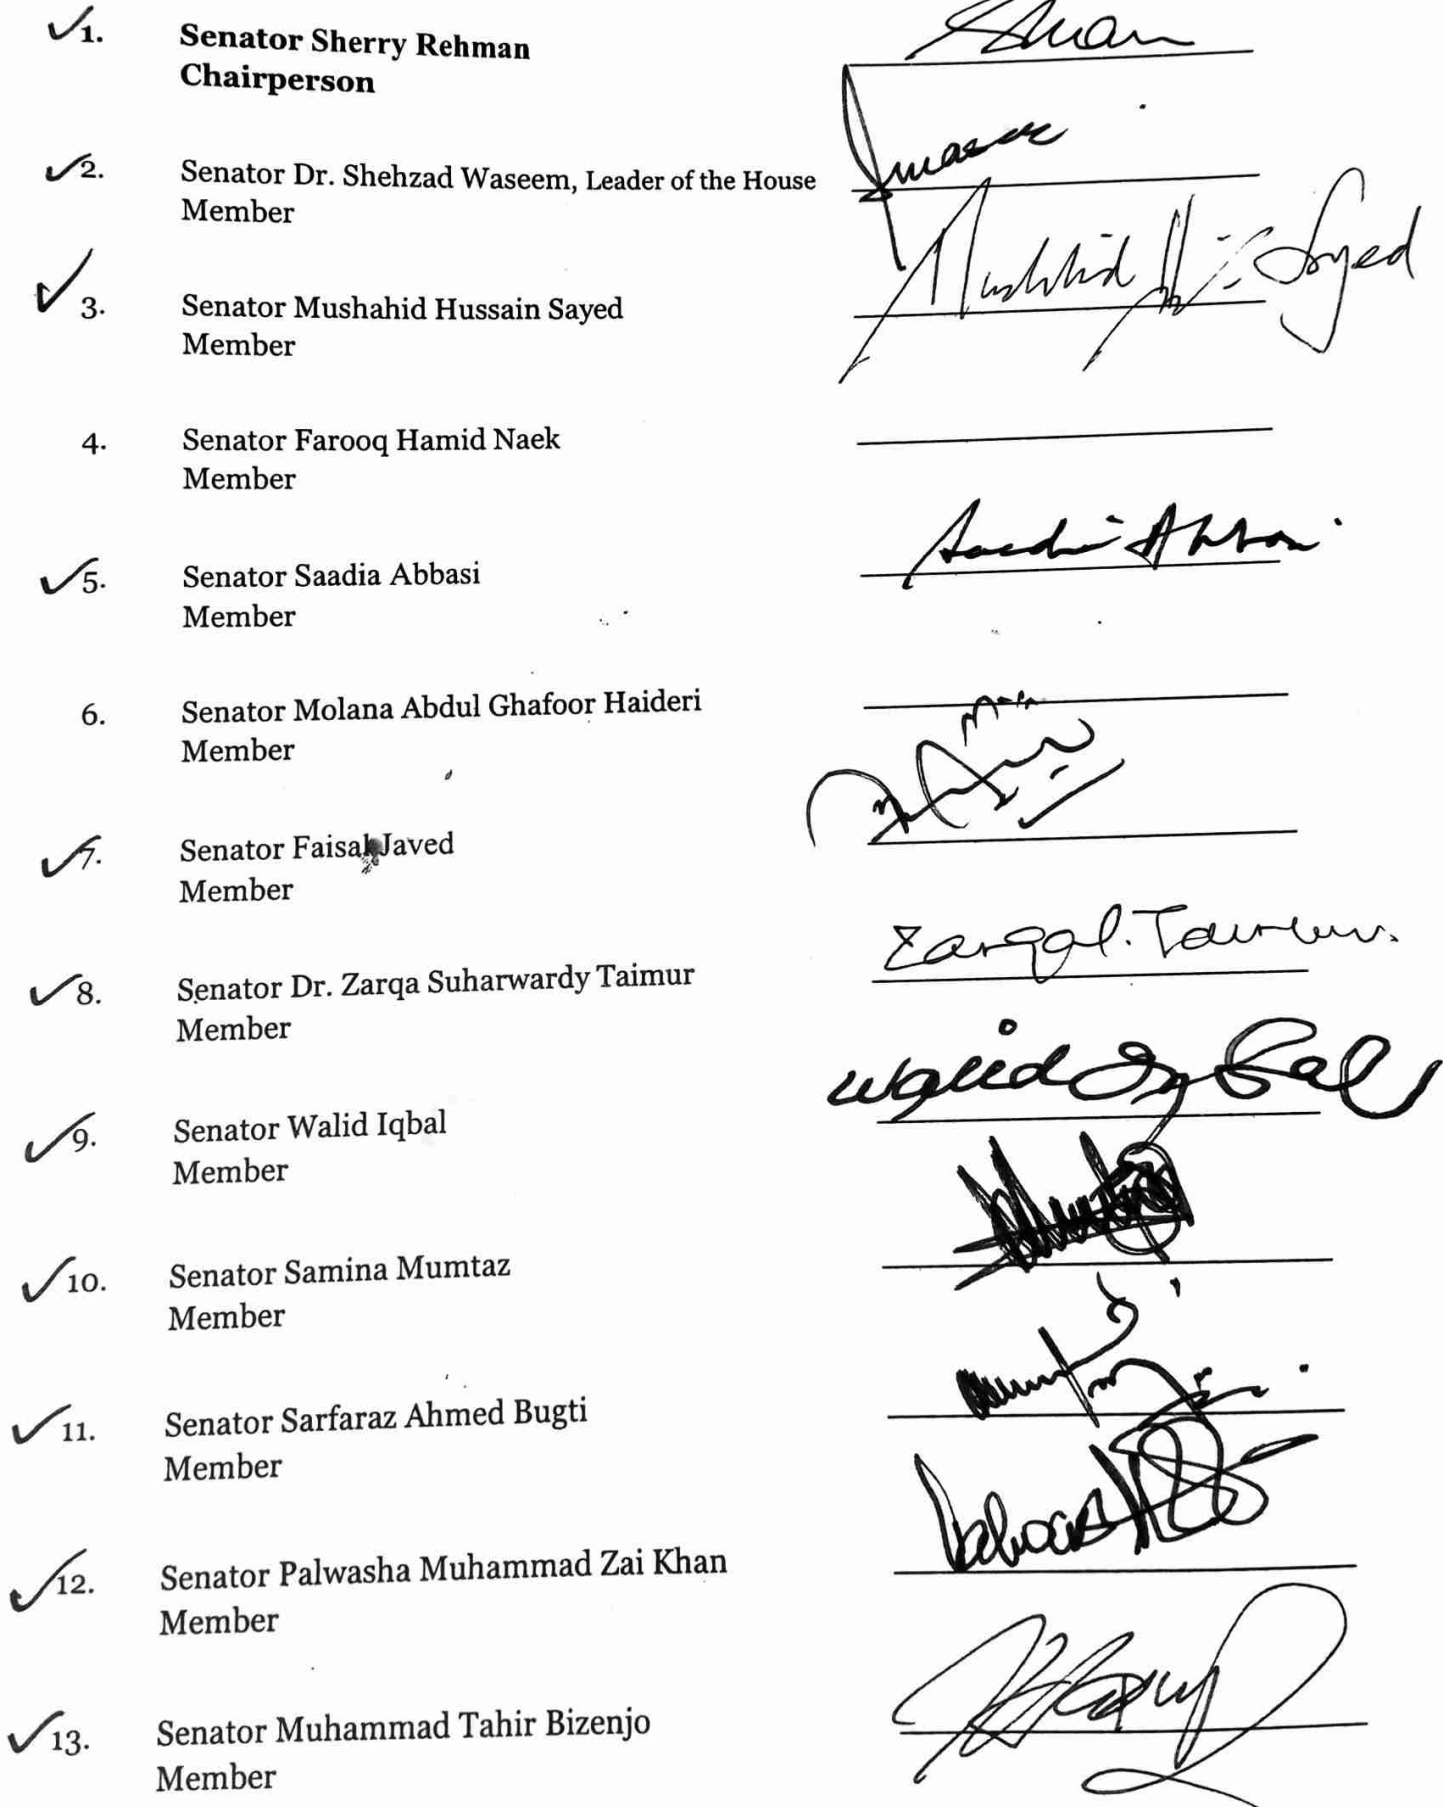 1. Senator Sherry Rehman
Chairperson
2. Senator Dr. Shehzad Waseem, Leader of the House
Member
3. Senator Mushahid Hussain Sayed
Member
Sayed
4. Senator Farooq Hamid Naek
Member
5. Senator Saadia Abbasi
Member
6. Senator Molana Abdul Ghafoor Haideri
Member
7. Senator Faisal Javed
Member
8. Senator Dr. Zarqa Suharwardy Taimur
Member
9. Senator Walid Iqbal
Member
Walid Iqbal
10. Senator Samina Mumtaz
Member
11. Senator Sarfaraz Ahmed Bugti
Member
12. Senator Palwasha Muhammad Zai Khan
Member
13. Senator Muhammad Tahir Bizenjo
Member